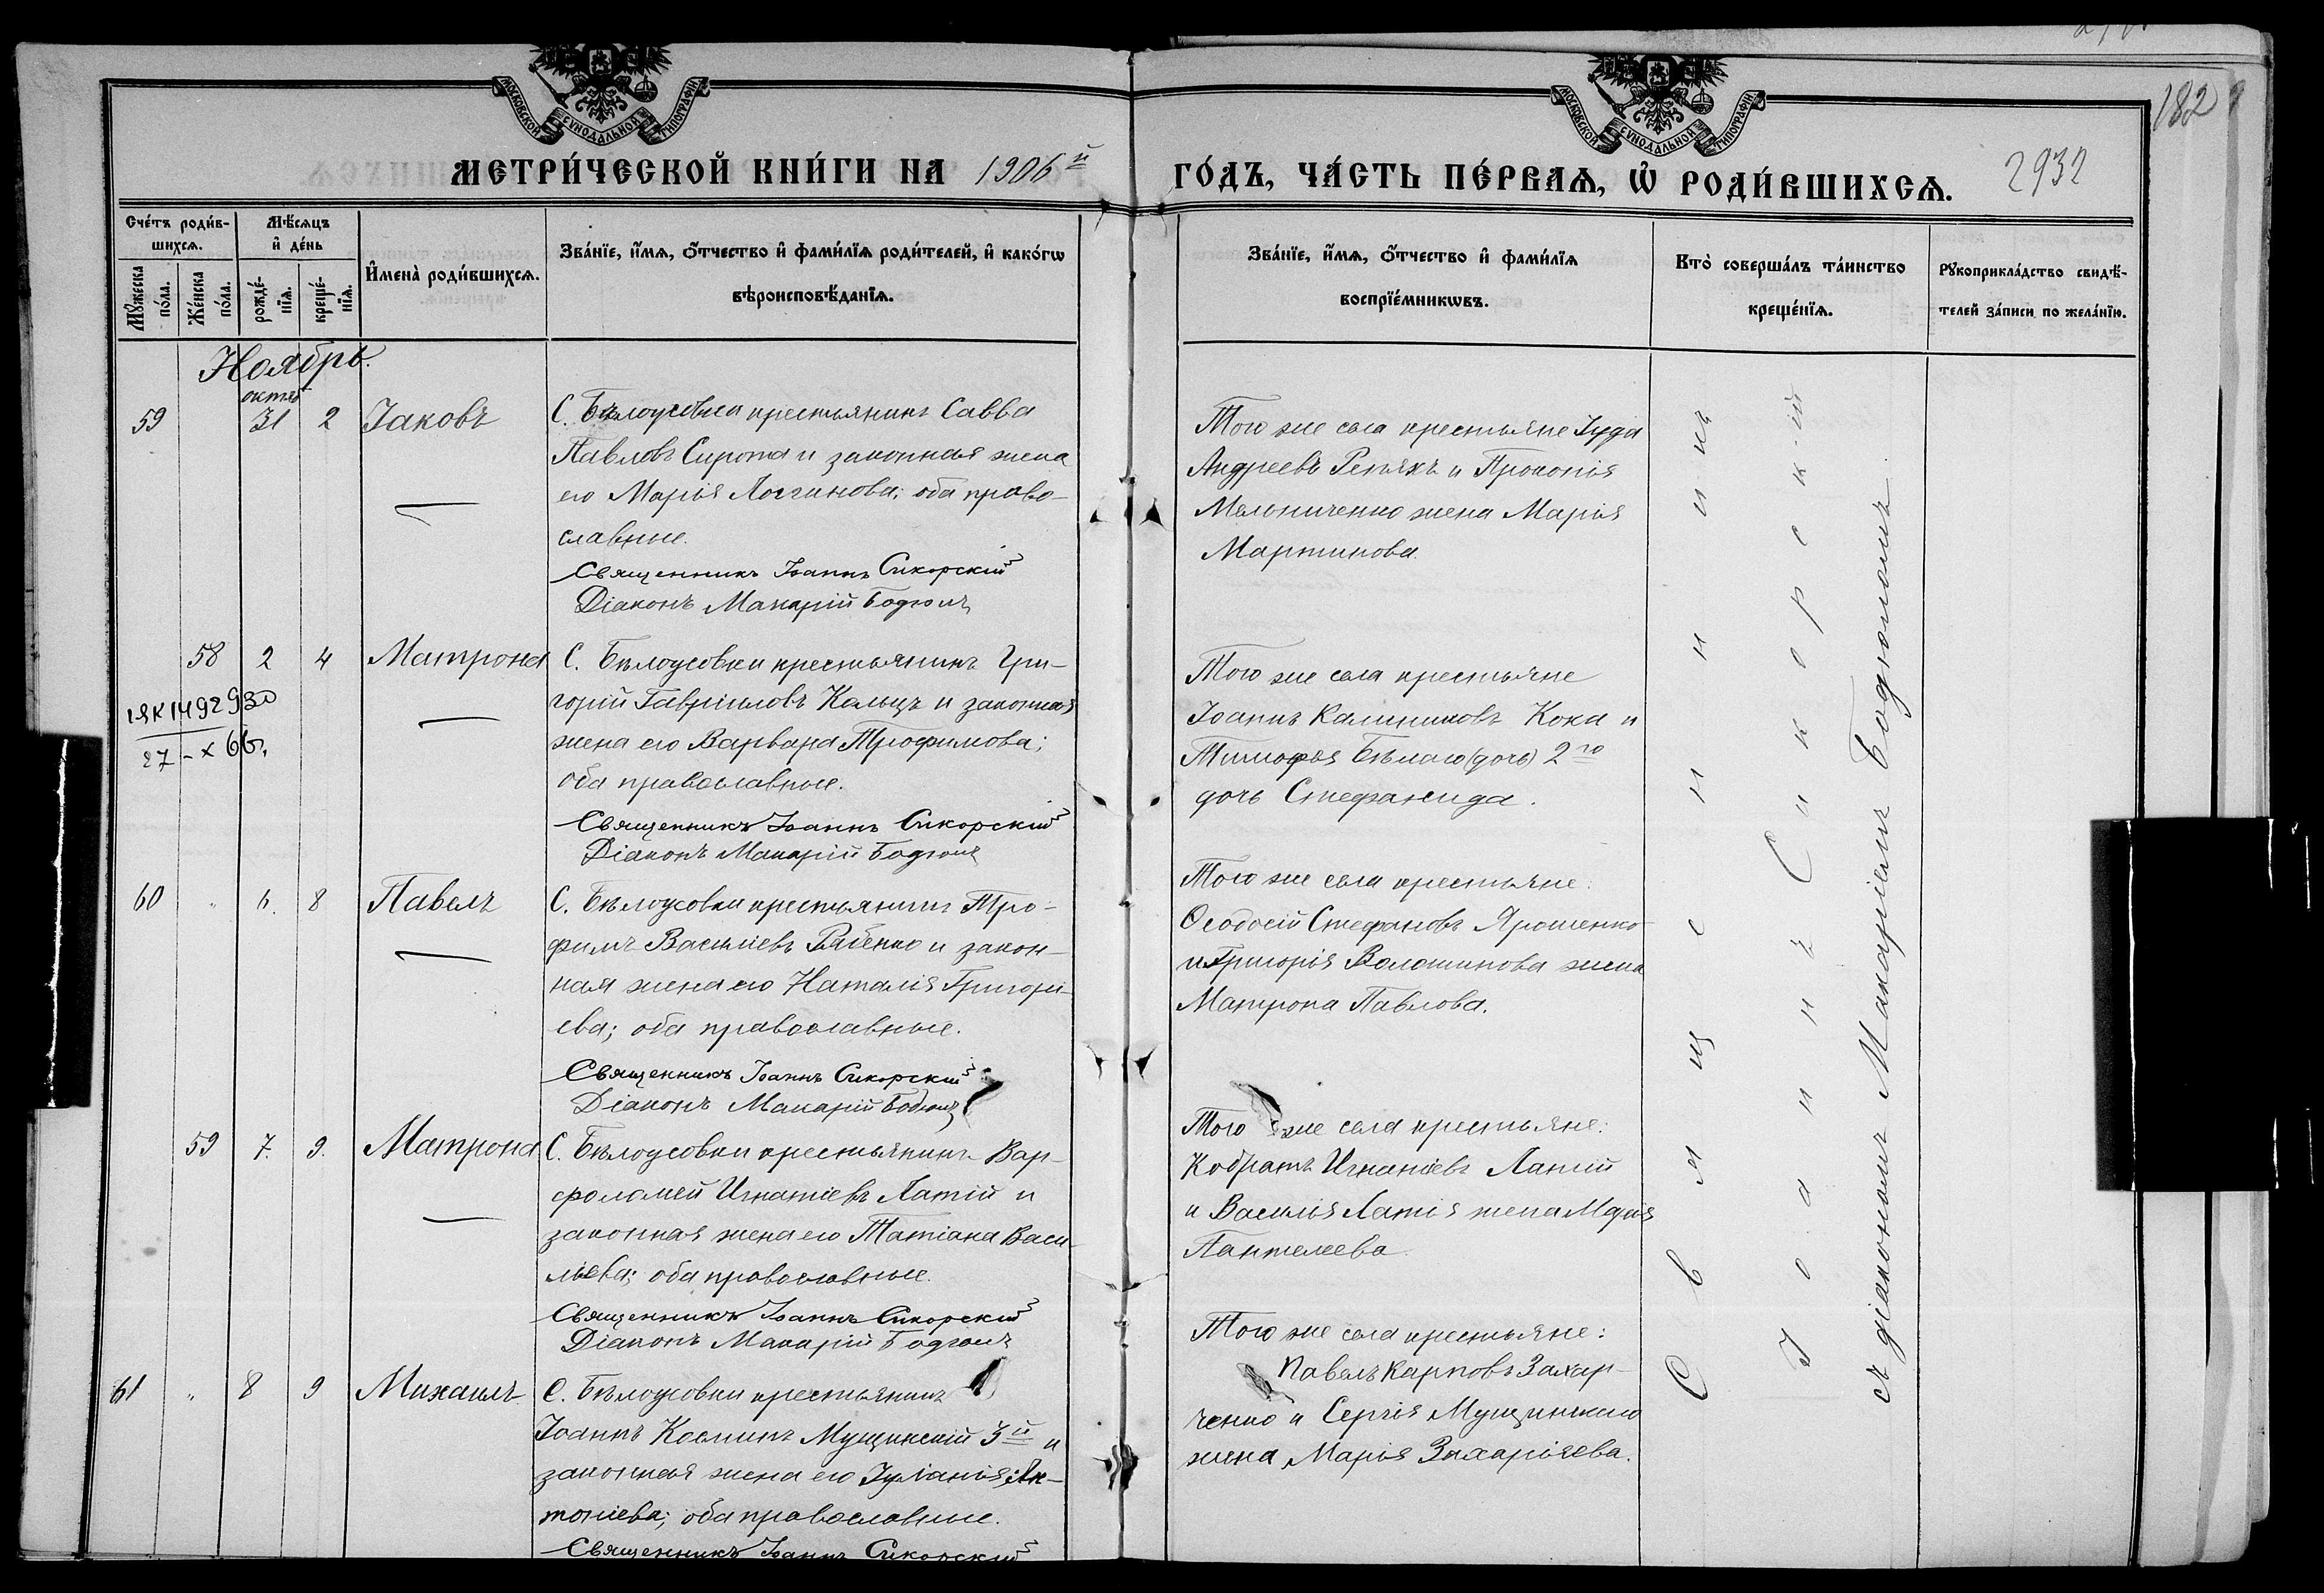 МОСКОВСКОЙ СѴНОДАЛЬНОЙ ТИПОГРАФІИ
МОСКОВСКОЙ СѴНОДАЛЬНОЙ ТИПОГРАФІИ
182
МЕТРИ́ЧЕСКОЙ КНИ́ГИ НА 1906й
ГО́ДЪ, ЧА́СТЬ ПЕ́РВАѦ, Ѡ҆ РОДИ́ВШИХСѦ.
2932
Сче́тъ роди́в-
шихсѧ.
Мѣ́сѧцъ
и҆ де́нь
Мꙋ́жеска
по́ла.
Же́нска
по́ла.
рожде́-
нїѧ.
креще́-
нїѧ.
И҆мена̀ роди́вшихсѧ.
Зва́нїе, и҆́мѧ, ѻ҆́тчество и҆ фами́лїѧ роди́телей, и҆ како́гѡ
вѣроисповѣ́данїѧ.
Зва́нїе, и҆́мѧ, ѻ҆́тчество и҆ фами́лїѧ
воспрїе́мникѡвъ.
Кто̀ соверша́лъ та́инство
креще́нїѧ.
Рꙋкоприкла́дство свидѣ́-
телей за́писи по жела́нїю.
Ноябрь.
октяб
59 31 2 Іаковъ
С. Бѣлоусовки крестьянинъ Савва
Павловъ Сирота и законная жена
его Марія Логгинова; оба право-
славные.
Священникъ Іоаннъ Сикорскій
Діаконъ Макарій Бодюлъ
Того же села крестьяне Іуда
Андреевъ Репяхъ и Прокопія
Мельниченко жена Марія
Мартинова.
58 2 4 Матрона
1ЯК 1492930
27-X 66г.
С. Бѣлоусовки крестьянинъ Гри-
горій Гавріиловъ Кальцъ и законная
жена его Варвара Трофимова;
оба православные.
Священникъ Іоаннъ Сикорскій
Діаконъ Макарій Бодюлъ
Того же села крестьяне
Іоаннъ Калиниковъ Кока и
Тимофея Бѣлаго (дочь) 2го
дочь Стефанида.
60 " 6. 8 Павелъ
С. Бѣлоусовки крестьянинъ Тро-
фимъ Василіевъ Рябенко и закон-
ная жена его Наталія Григорі-
ева; оба православные.
Священникъ Іоаннъ Сикорскій
Діаконъ Макарій Бодюлъ
Того же села крестьяне:
Ѳеодосій Стефановъ Ярошенко
и Григорія Волошинова жена
Матрона Павлова.
59 7. 9. Матрона
С. Бѣлоусовки крестьянинъ Вар-
фоломей Игнатіевъ Латій и
законная жена его Татіана Васи-
льева; оба православные.
Священникъ Іоаннъ Сикорскій
Діаконъ Макарій Бодюлъ
Того же села крестьяне:
Кодратъ Игнатіевъ Латій
и Василія Латія жена Марія
Пантелеева.
61 " 8 9 Михаилъ
С. Бѣлоусовки крестьянинъ
Іоаннъ Косминъ Мущинскій 3й и
законная жена его Іуліанія Ан-
тоніева; оба православные.
Священникъ Іоаннъ Сикорскій
Того же села крестьяне:
Павелъ Карповъ Захар-
ченко и Сергія Мущинскаго
жена Марія Захаріева.
Священникъ
Іоаннъ Сикорскій
съ діакономъ Макаріемъ Бодюломъ